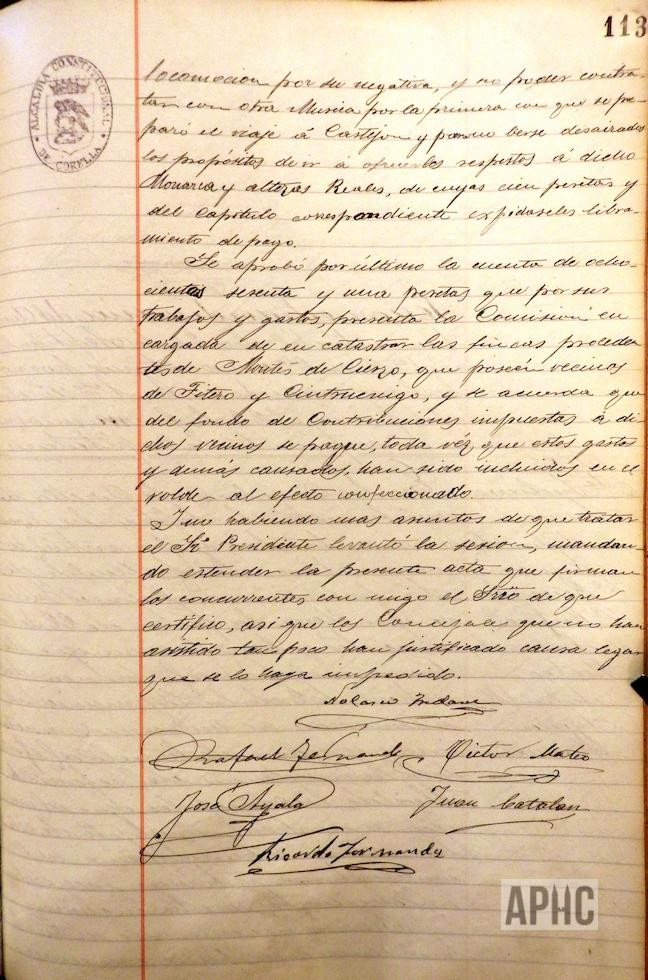 113
ALCALDIA CONSTITUCIONAL
DE CORELLA
locomocion por su negativa, y no poder contra-
tar con otra Musica por la premura con que se pre-
paró el viaje á Castejon y por no verse desairados
los propósitos de ir á ofrecerles respetos á dicho
Monarca y altezas Reales, de cuyas cien pesetas y
del capitulo correspondiente expidaseles libra-
miento de pago.
Se aprobó por último la cuenta de ocho-
cientas sesenta y una pesetas que por sus
trabajos y gastos, presenta la Comisión en
cargada de en catastrar las fincas proceden
tes de Montes de Cierzo, que poseén vecinos
de Fitero y Cintruenigo, y se acuerda que
del fondo de Contribuciones impuestas á di-
chos vecinos se pague, toda véz que estos gastos
y demás causados, han sido incluidos en el
rolde al efecto confeccionado.
I no habiendo mas asuntos de que tratar
el Sr. Presidente levantó la sesion, mandan-
do estender la presente acta que firman
los concurrentes, con migo el Srio de que
certifico, asi que los Concejales que no han
asistido tan poco han justificado causa legal
que se lo haya impedido.
Rafael Fernandez Victor Mateo
José Ayala Juan Catalan
Ricardo Fernandez
APHC